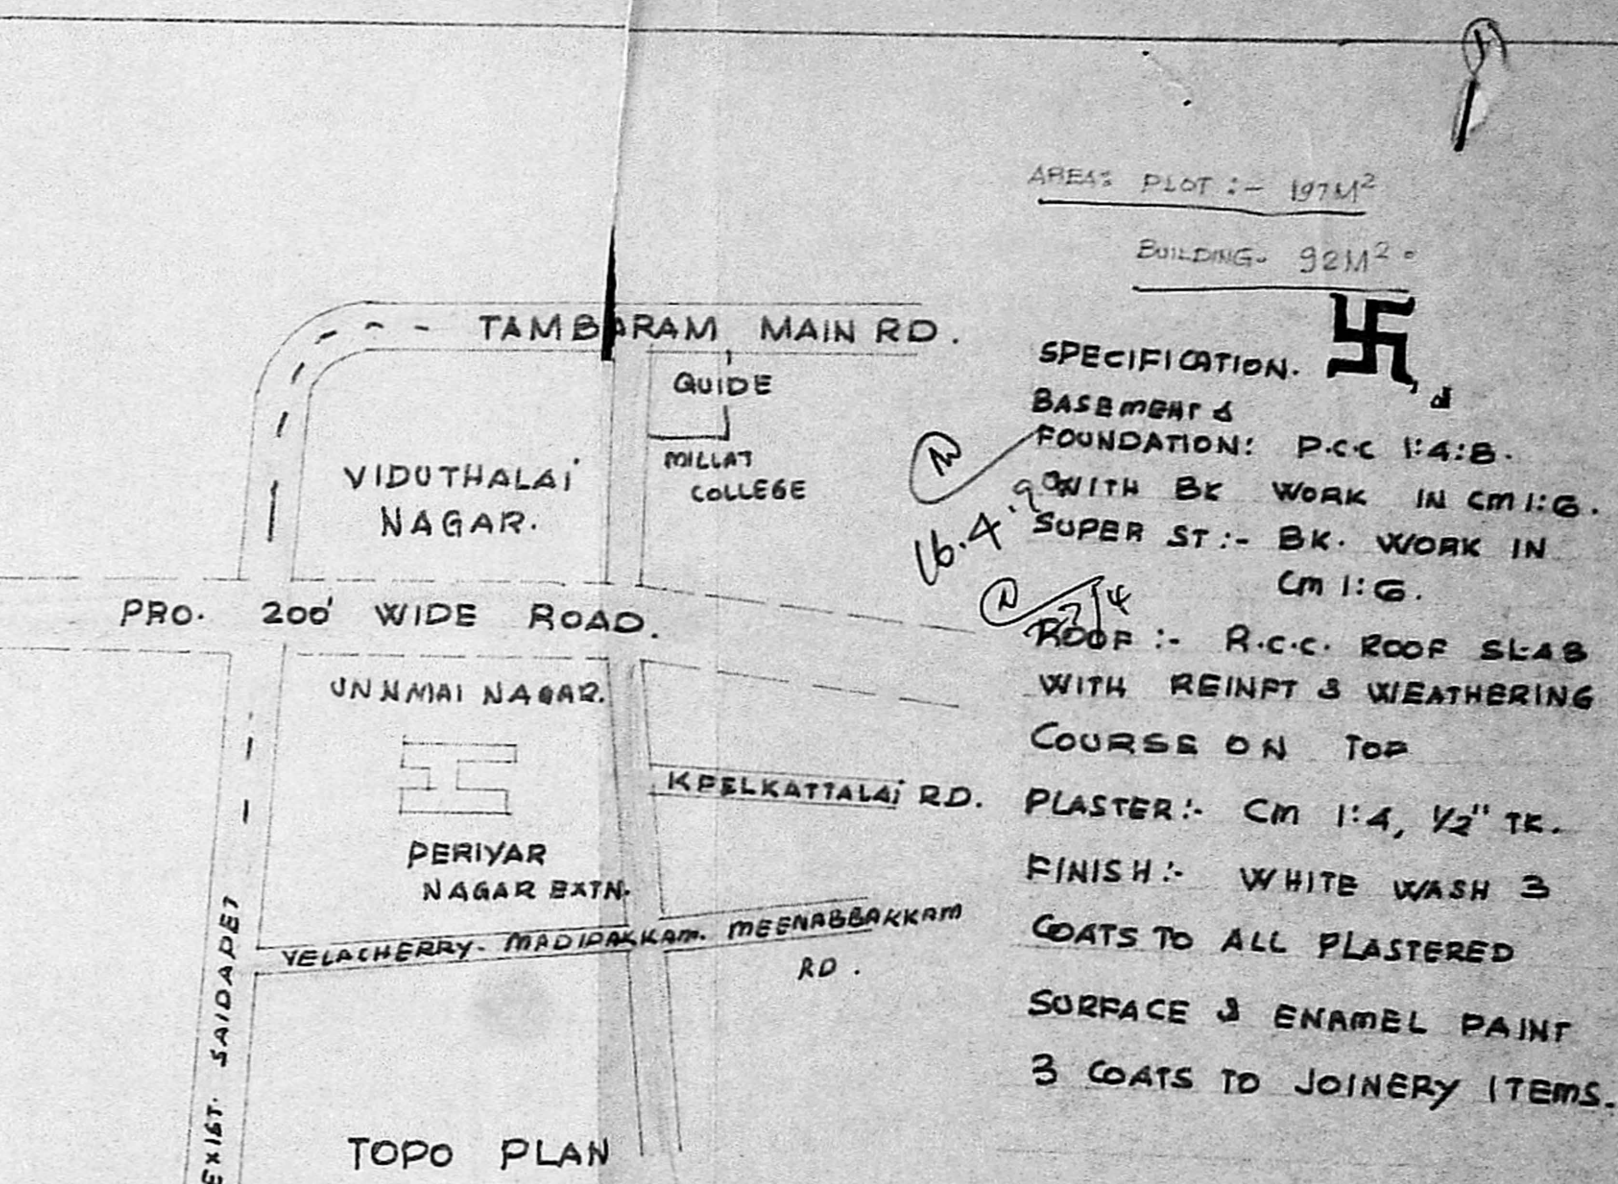 AREA: PLOT :- 197M²
BUILDING. 92M².
TAMBARAM MAIN RD.
QUIDE
MILLAT
COLLEGE
VIDUTHALAI
NAGAR.
PRO. 200' WIDE ROAD.
UNNMAI NAGAR.
KPELKATTALAI RD.
PERIYAR
NAGAR EXTN.
VELACHERRY- MADIPAKKAM. MEENABBAKKAM
RD.
EXIST. SAIDAPET
TOPO PLAN
SPECIFICATION.
BASEMENT &
FOUNDATION: P.C.C 1:4:8.
WITH BK WORK IN CM 1:6.
SUPER ST:- BK. WORK IN
CM 1:6.
ROOF :- R.C.C. ROOF SLAB
WITH REINFT & WEATHERING
COURSE ON TOP
PLASTER:- CM 1:4, 1/2" TK.
FINISH:- WHITE WASH 3
COATS TO ALL PLASTERED
SURFACE & ENAMEL PAINT
3 COATS TO JOINERY ITEMS.
16.4.9